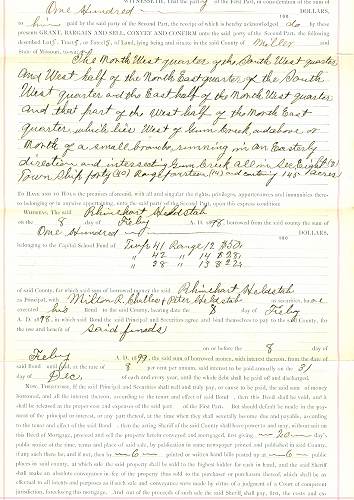 WITNESSETH, That the party of the First Part, in consideration of the sum of
One Hundred DOLLARS,
to him paid by the said party of the Second Part, the receipt of which is hereby acknowledged do by these
presents GRANT, BARGAIN AND SELL, CONVEY AND CONFIRM unto the said party of the Second Part, the following
described Lots, Tracts or Parcels, of Land, lying, being and situate in the said County of Miller and
State of Missouri, to-wit:
The North West quarter of the South West quarter
And West half of the North East quarter of the South
West quarter and the East half of the North West quarter
And that part of the West half of the North East
quarter which lies West of Gum Creek and above or
North of a small branch running in an Easterly
direction and intersecting Gum Creek all in Sec Eight (8)
Town Ship forty (40) Range fourteen (14) and containing 145 Acres
TO HAVE AND TO HOLD the premises aforesaid, with all and singular the rights, privileges, appurtenances and immunities thereto
belonging or in anywise appertaining, unto the said party of the Second Part, upon this express condition:
WHEREAS, The said Rhinehart
on the 8 day of Feby A. D. 1898, borrowed from the said county the sum of
One Hundred DOLLARS,
belonging to the Capital School Fund of Twp 41 Range 12
" 42 " 14
" 38 " 13
of said County, for which said sum of borrowed money, the said Rhinehart
as Principal, with Milton R. & Peter as securities, have
executed his Bond to the said County, bearing date the 8 day of Feby
A. D. 1898, in which said Bond said Principal and Securities agree and bind themselves to pay to the said County, for
the use and benefit of said funds
on or before the 8 day of
Feby A. D. 1899, the said sum of borrowed money, with interest thereon, from the date of
said Bond until paid, at the rate of 8 per cent per annum, said interest to be paid annually on the 31
day of Dec. of each and every year, until the whole debt shall be paid off and discharged.
NOW, THEREFORE, If the said Principal and Securities shall well and truly pay, or cause to be paid, the said sum of money
borrowed, and all the interest thereon, according to the tenor and effect of said Bond, then this Deed shall be void, and it
shall be released at the proper cost and expense of said party of the First Part. But should default be made in the pay-
ment of the principal or interest, or any part thereof, at the time when they shall severally become due and payable, according
to the tenor and effect of the said Bond, then the acting Sheriff of the said County shall have power to and may, without suit on
this Deed of Mortgage, proceed and sell the property herein conveyed and mortgaged, first giving 20 days'
public notice of the time, terms and place of sale, by publication in some newspaper printed and published in said County,
if any such there be, and if not, then by 6 printed or written hand bills posted up at 6 public
places in said county, at which sale the said property shall be sold to the highest bidder for cash in hand, and the said Sheriff
shall make an absolute conveyance in fee of the property thus sold to the purchaser or purchasers thereof, which shall be as
effectual to all intents and purposes as if such sale and conveyance were made by virtue of a judgment of a Court of competent
jurisdiction, foreclosing this mortgage. And out of the proceeds of such sale the said Sheriff shall pay, first, the costs and ex-